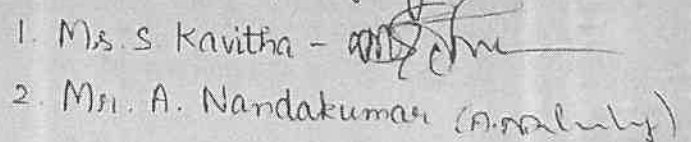 1. Ms. S Kavitha -
2. Mr. A. Nandakumar